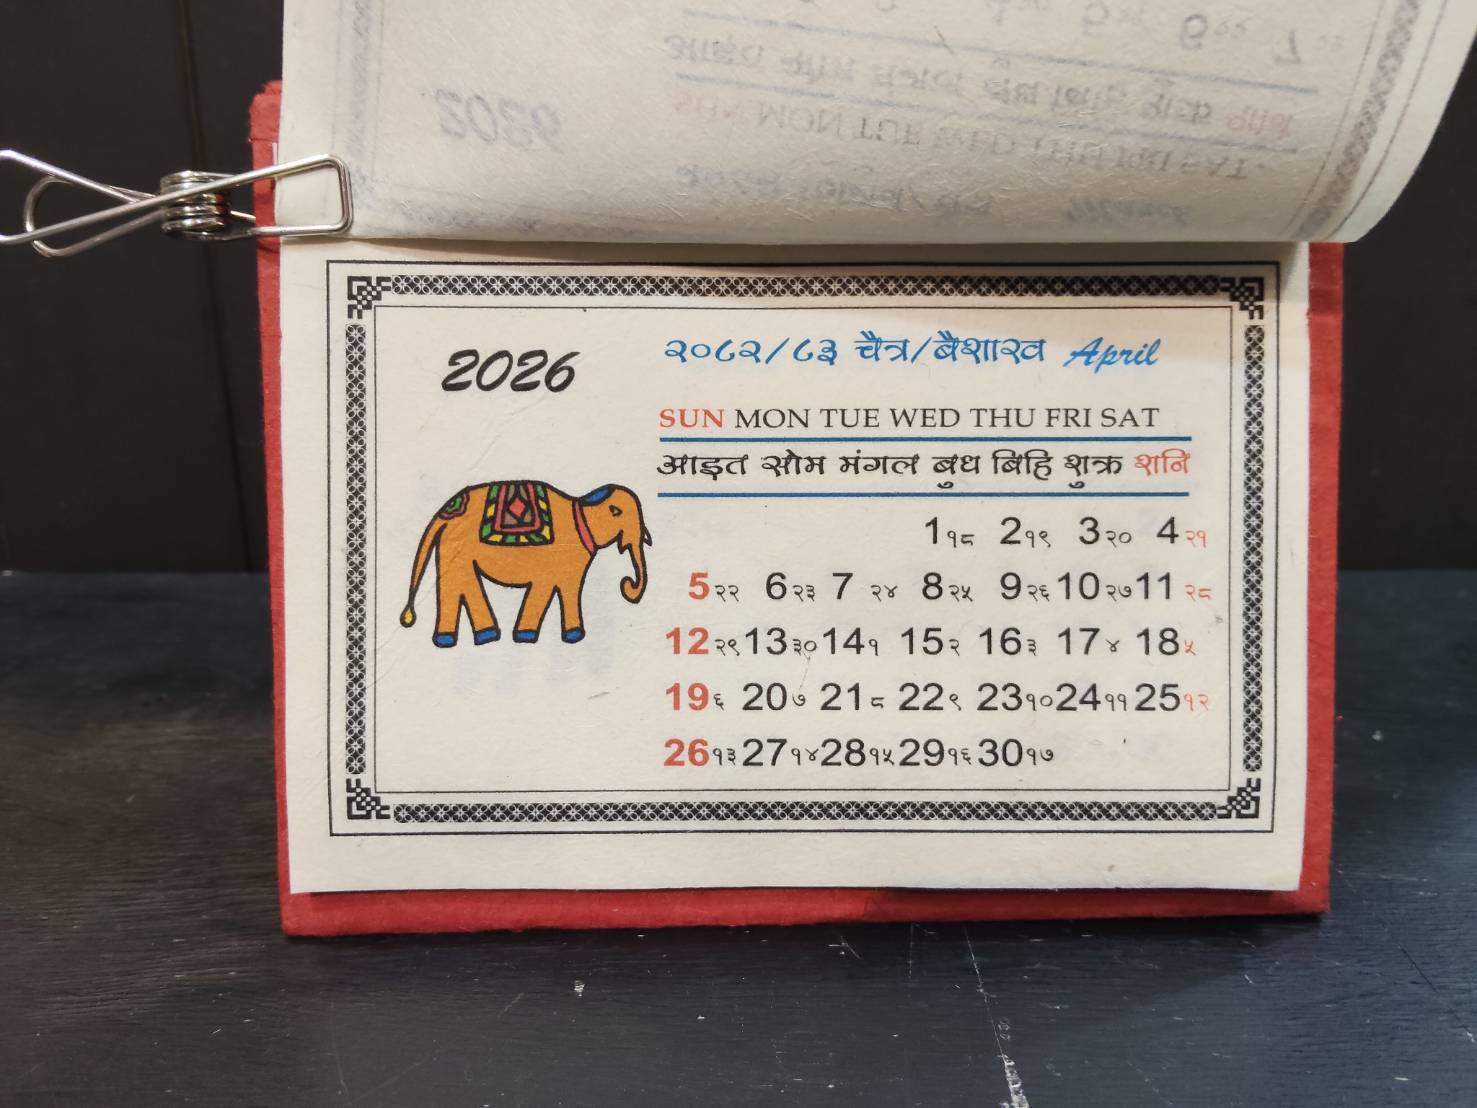 2026
२०८२/८३ चैत्र/बैशाख April
SUN MON TUE WED THU FRI SAT
आइत सोम मंगल बुध बिहि शुक्र शनि
1 १८ 2 १९ 3 २० 4 २१
5 २२ 6 २३ 7 २४ 8 २५ 9 २६ 10 २७ 11 २८
12 २९ 13 ३० 14 १ 15 २ 16 ३ 17 ४ 18 ५
19 ६ 20 ७ 21 ८ 22 ९ 23 १० 24 ११ 25 १२
26 १३ 27 १४ 28 १५ 29 १६ 30 १७